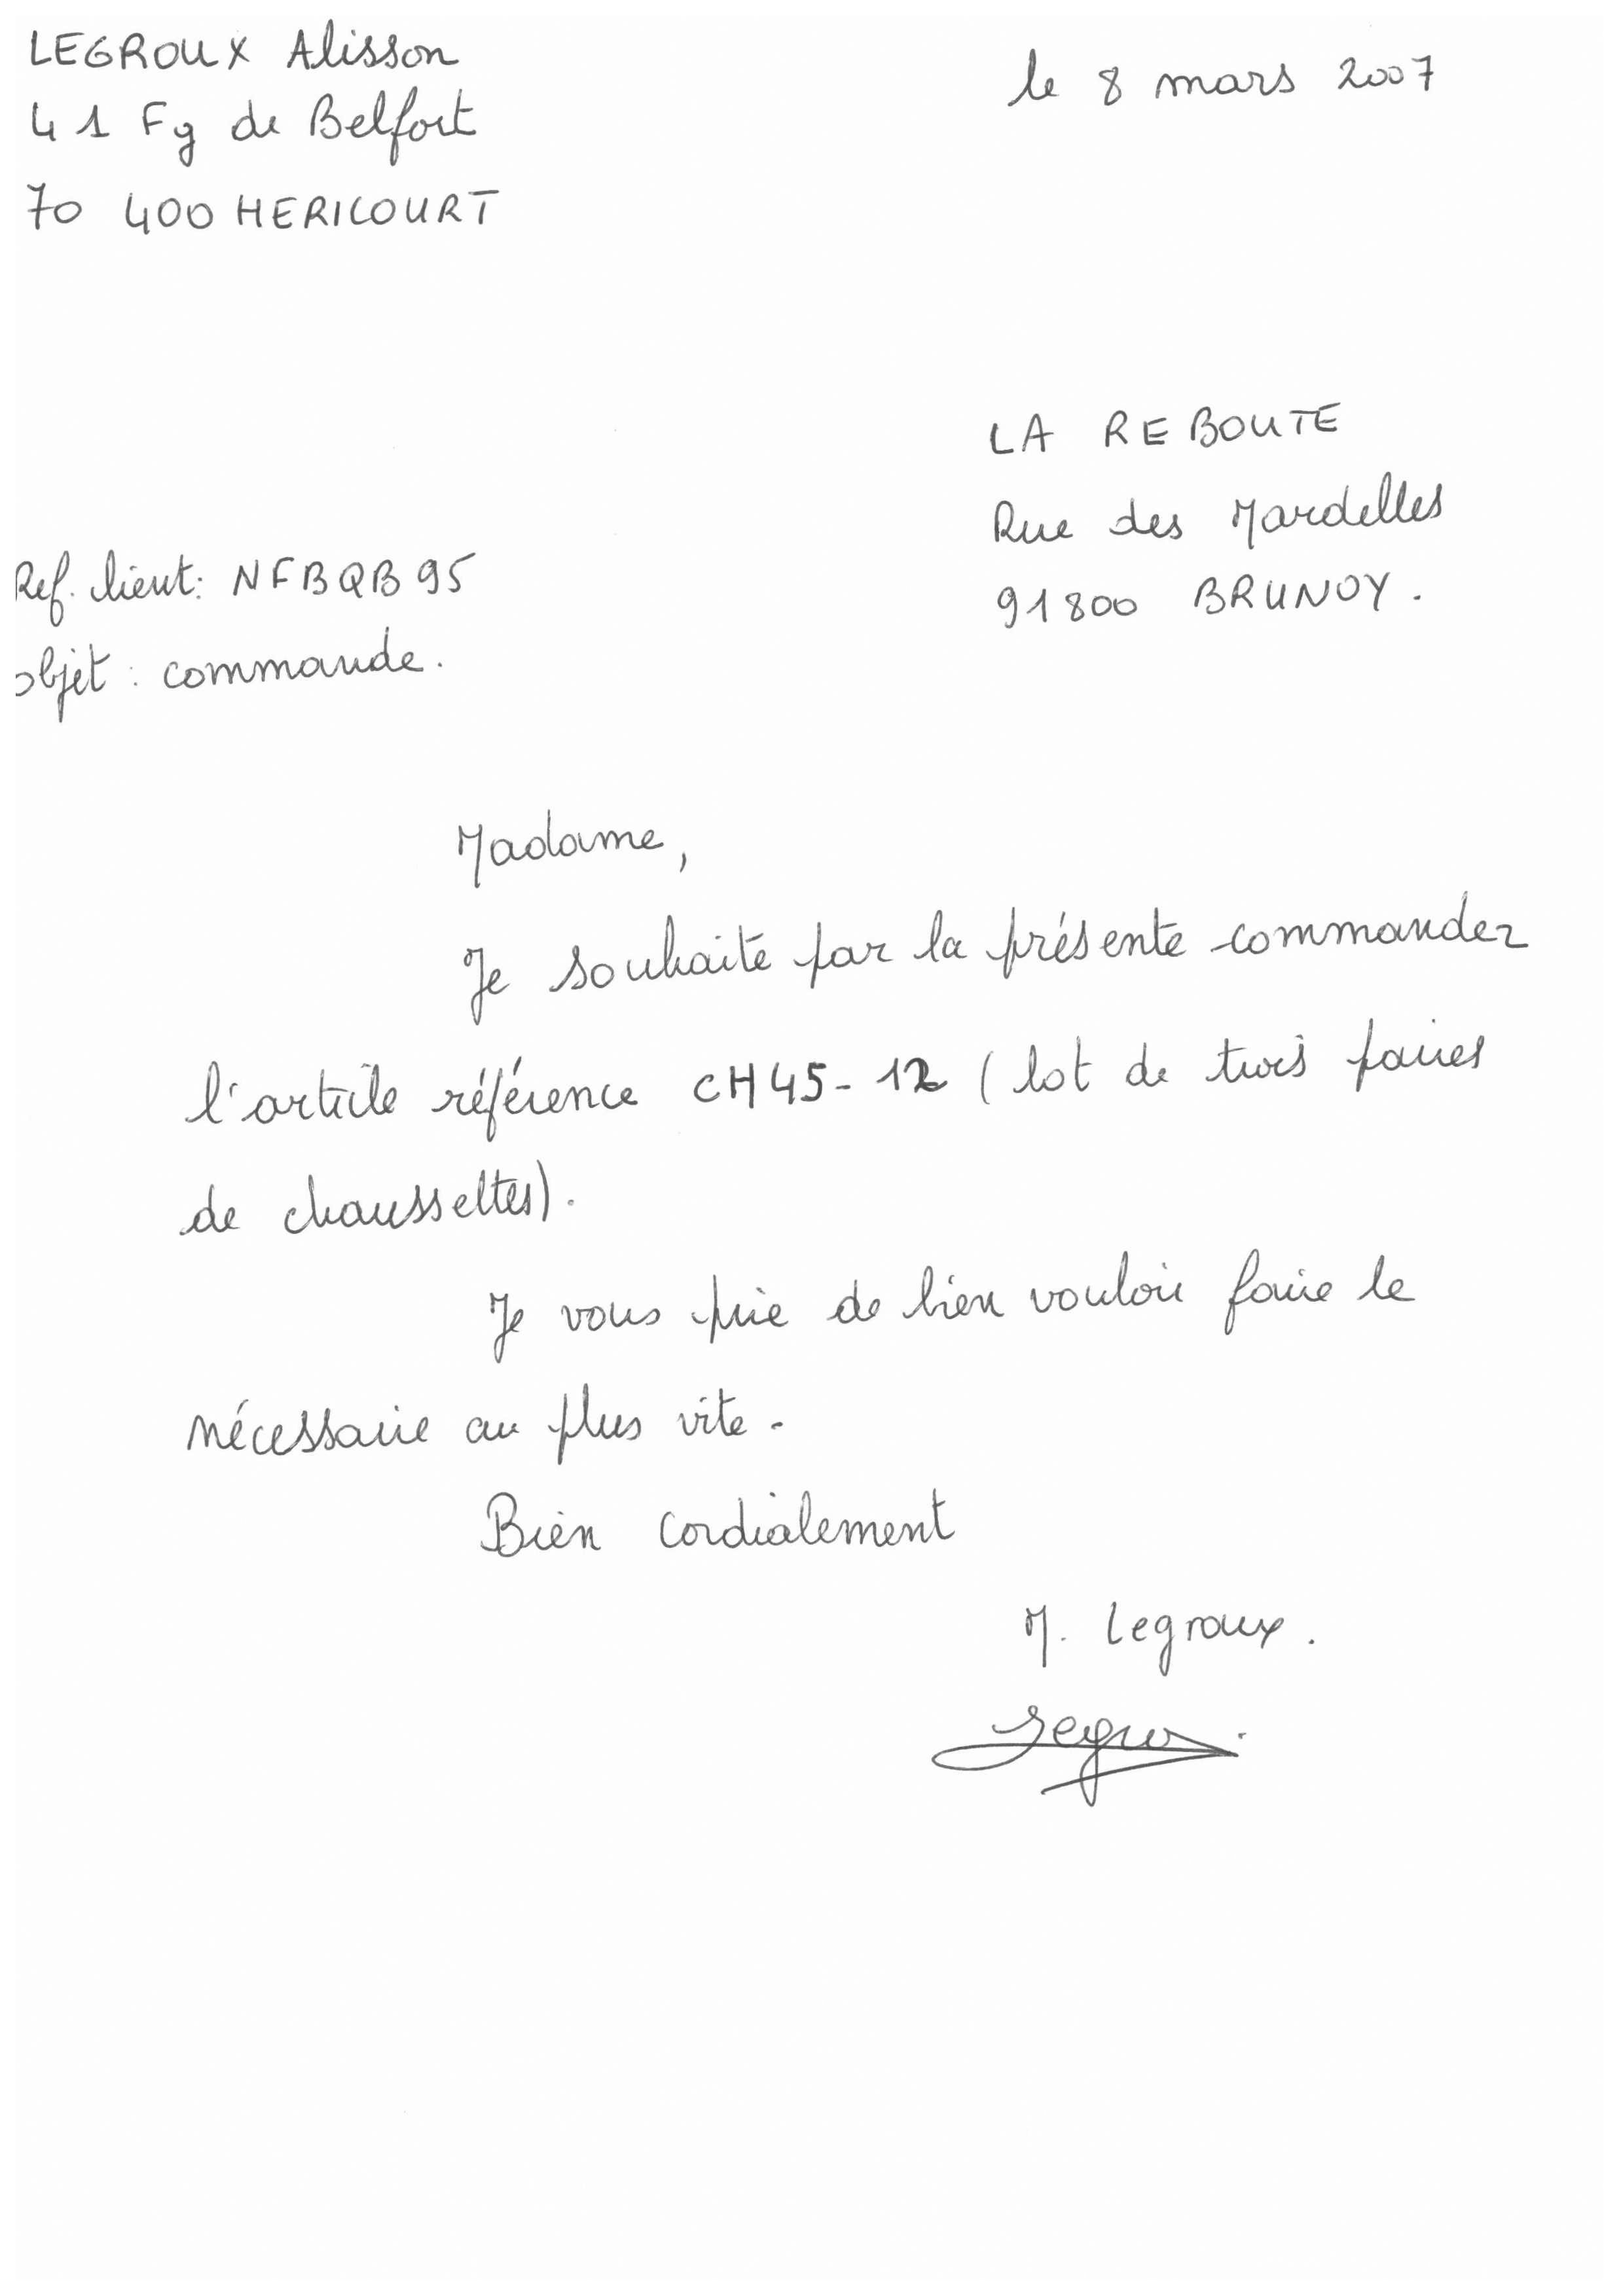 LEGROUX Alisson
le 8 mars 2007
41 Fg de Belfort
70 400 HERICOURT
LA REBOUTE
Rue des Mardelles
91800 BRUNOY.
Ref. lient: NFBQB95
objet : commande.
Madame,
Je souhaite par la présente commander
l'article référence CH45-12 (lot de trois paires
de chaussettes).
Je vous prie de bien vouloir faire le
nécessaire au plus vite.
Bien cordialement
M. Legroux.